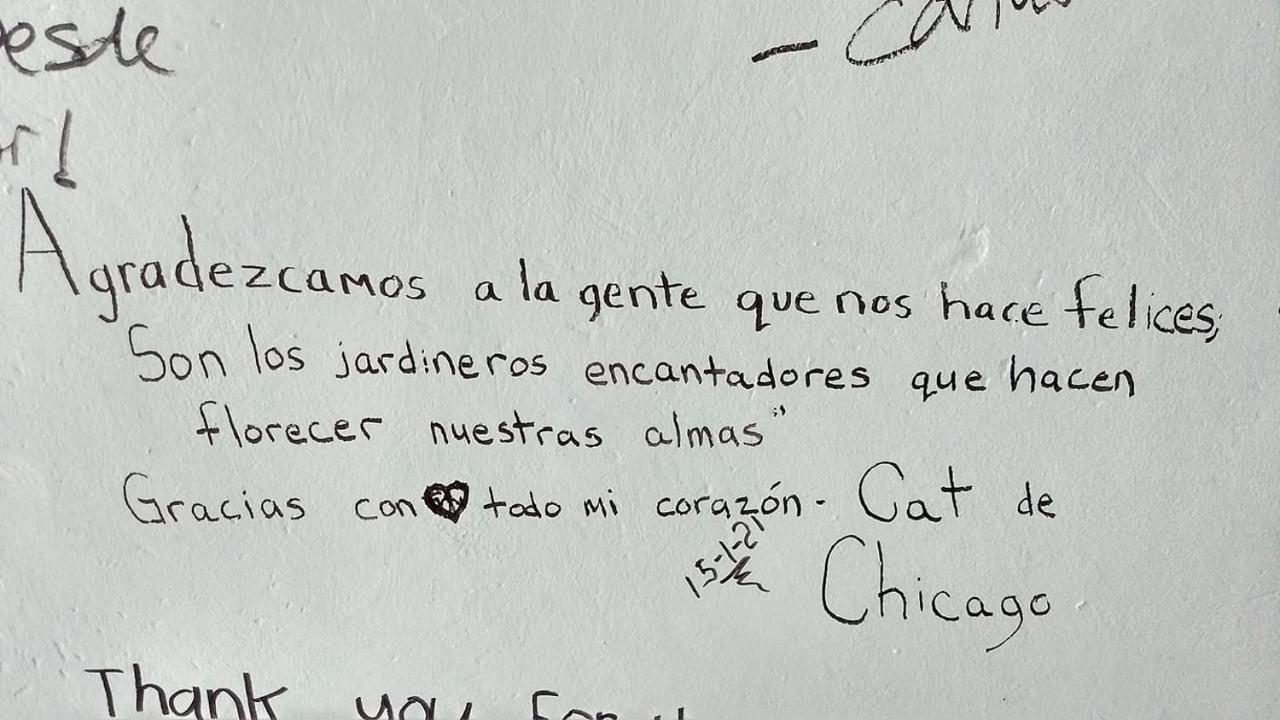 esde
r!
Agradezcamos a la gente que nos hace felices;
Son los jardineros encantadores que hacen
florecer nuestras almas"
Gracias con ♥ todo mi corazón - Cat de
Chicago
15-1-21
Thank you